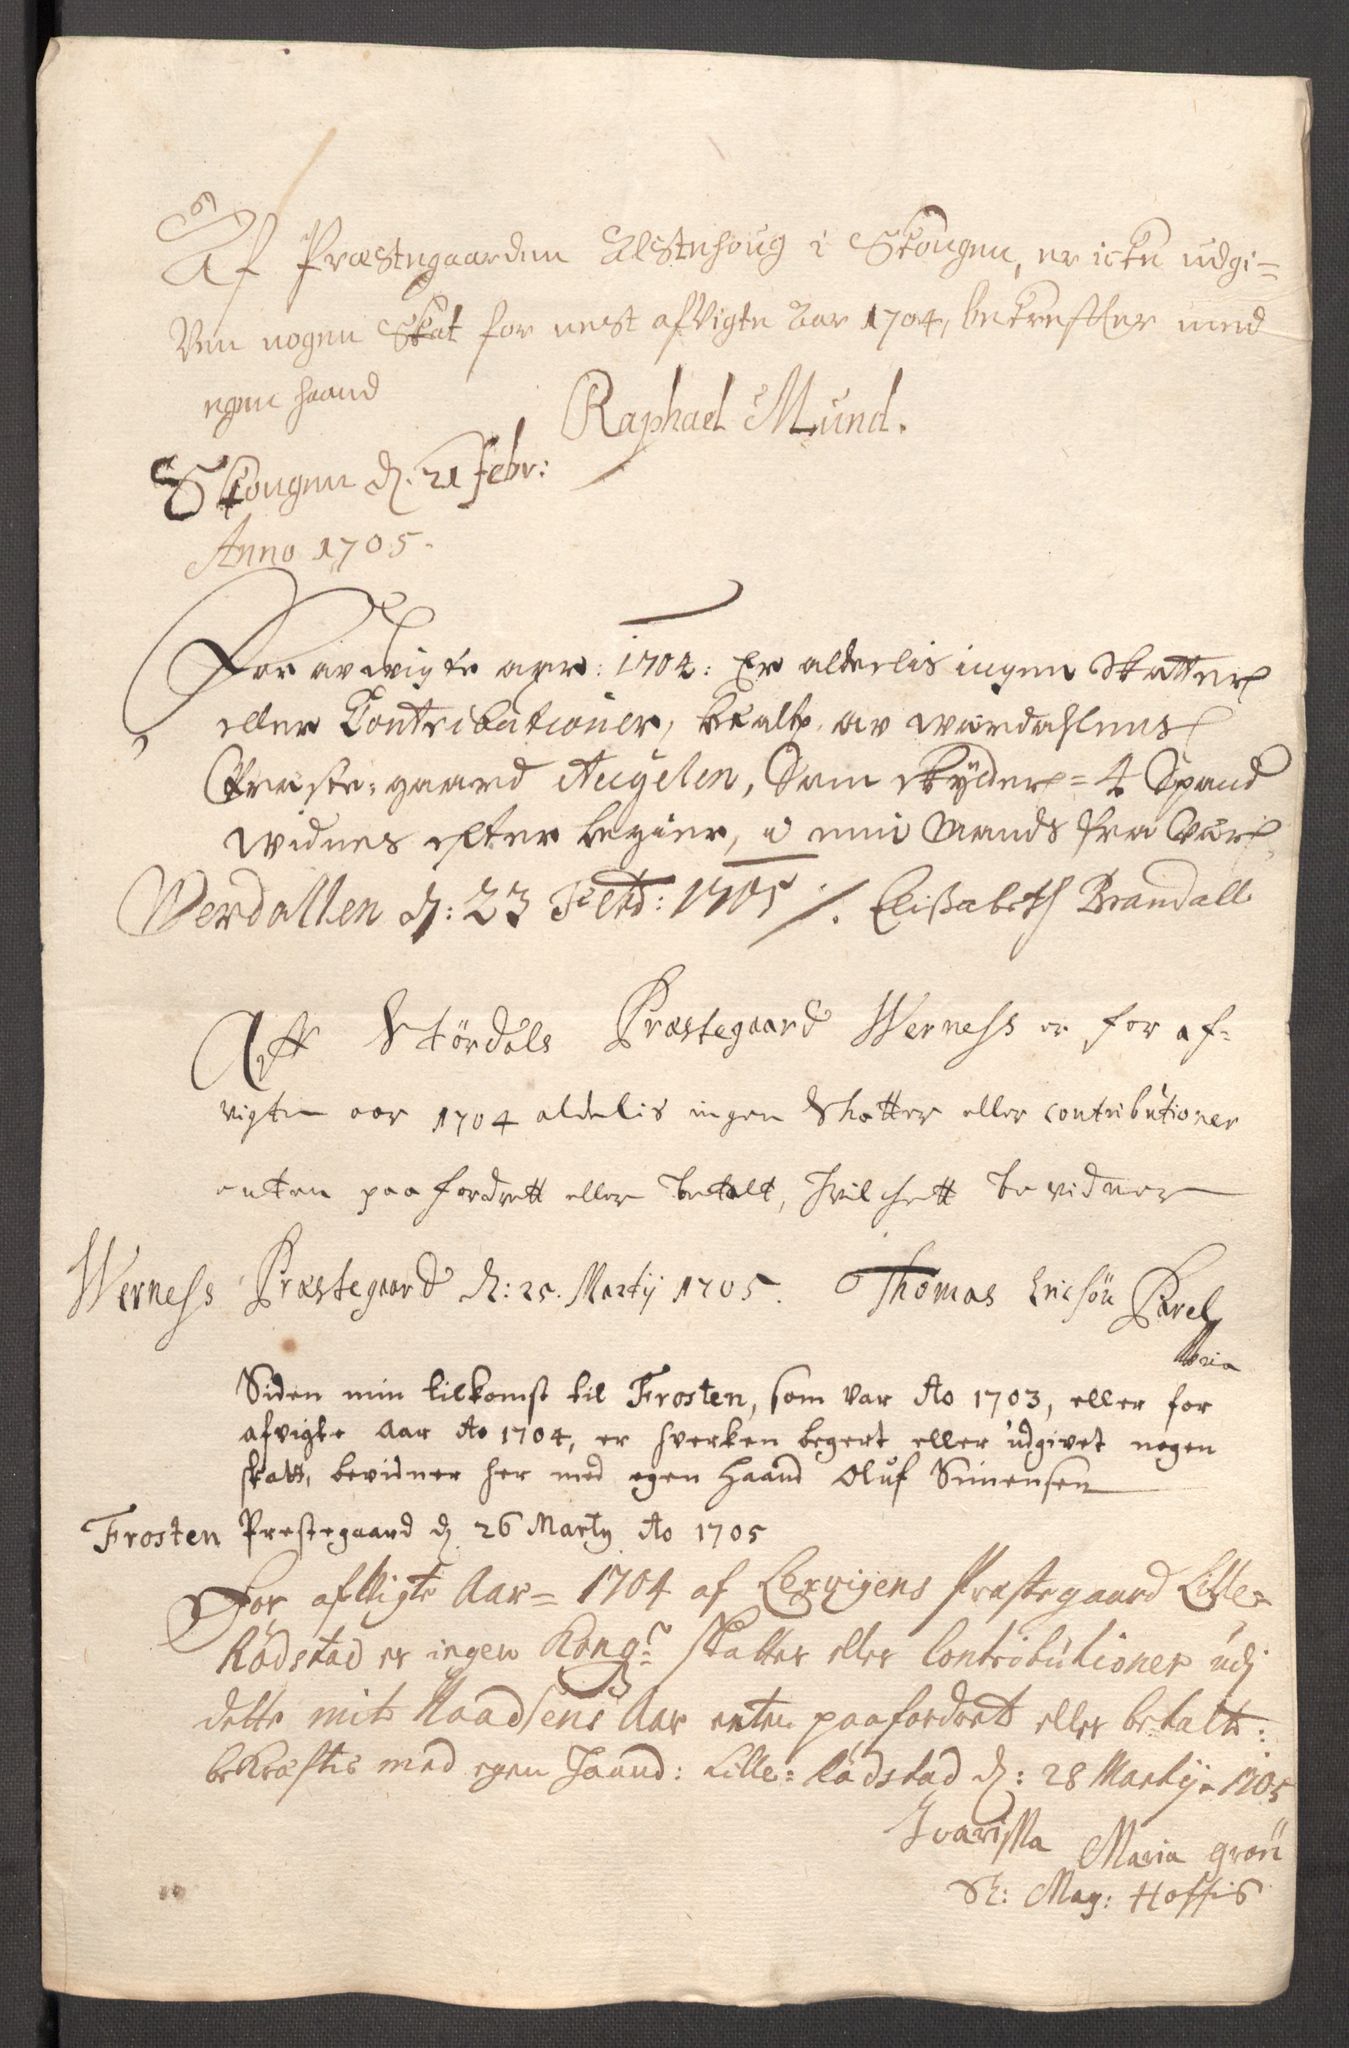 Af Præstegaarden Alstehoug i Skougen, er icke udgi=
ven nogen Skat for nest afvigte Aar 1704, bekrefter med
egen haand
Raphael Mund.
Skougen d. 21 Febr:
Anno 1705.
For avvigte aar: 1704: Er alderlis ingen Skatter
eller Contributioner, betalt av Wærdahlens
Præste-gaard Augelen, Som skylder = 4 Spand
widnes efter begier, i min Mands fra
Werdallen d: 23 1705 ∕. Elisabeth Brandall
Aff Stördals Præstegaard Werness er for af=
vigte aar 1704 aldelis ingen Skatter eller contributioner
enten paafordrett eller betalt, hvilchett bevidner
Werness Præstegaard d: 25. Martij 1705. Thomas Ericsön
Siden min tilkomst til Frosten, som var Ao 1703, eller for
afvigte Aar Ao 1704, er hverken begert eller udgivet nogen
skatt, bevidner her med egen Haand Oluf Simensen
Frosten Prestegaard d. 26 Marty Ao 1705
For afvigte Aar = 1704 af Lexvigens Præstegaard Lille=
Rödstad er ingen Kong: skatter eller Contributioner udj
dette mit Naadsens Aar enten paafordret eller betalt:
bekræftis med egen Haand: Lille= Rödstad d: 28 Martij 1705
Maria Grön
Sl: Mag: Hoffis